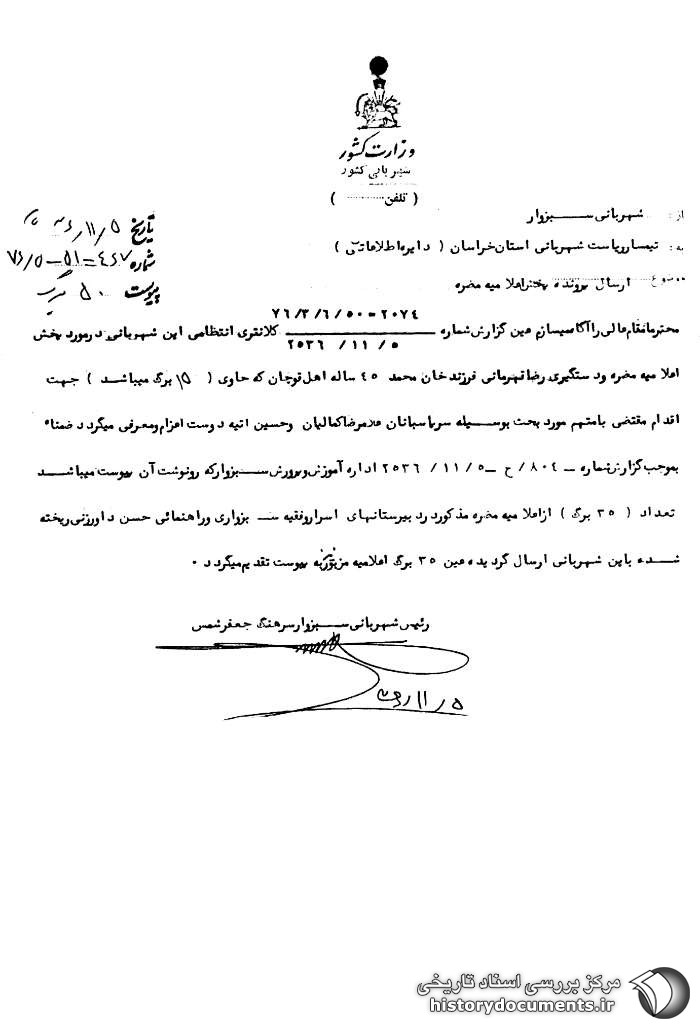 وزارت کشور
شهربانی کشور
( تلفن ........... )
از: شهربانی سبزوار
به: تیمسار ریاست شهربانی استان خراسان ( دایره اطلاعاتی )
موضوع ارسال پرونده پخش اعلامیه مضره
تاریخ ۵ / ۱۱ /
شماره
پیوست ۵۰ برگ
محترما مقام عالی را آگاه میسازم عین گزارش شماره ۲۰۷۴ – ۷۶/۳/۶/۵۰ – ۲۵۳۶/۱۱/۵ کلانتری انتظامی این شهربانی در مورد پخش
اعلامیه مضره و دستگیری رضا قهرمانی فرزند خان محمد ۴۵ ساله اهل قوچان که حاوی ( ۱۵ برگ میباشد ) جهت
اقدام مقتضی با متهم مورد بحث بوسیله سرپاسبانان غلامرضا کمالیان و حسین اتیه دوست اعزام و معرفی میگردد ضمناً
بموجب گزارش شماره – ۸۰۴ / ح – ۲۵۳۶/۱۱/۵ اداره آموزش و پرورش سبزوار که رونوشت آن پیوست میباشد
تعداد ( ۳۵ برگ ) از اعلامیه مضره مذکور در دبیرستانهای اسرار و فقیه سبزواری و راهنمائی حسن داورزنی ریخته
شده باین شهربانی ارسال گردیده عین ۳۵ برگ اعلامیه مزبور به پیوست تقدیم میگردد .
رئیس شهربانی سبزوار سرهنگ جعفر شمس
۵ / ۱۱ /
مرکز بررسی اسناد تاریخی
historydocuments.ir